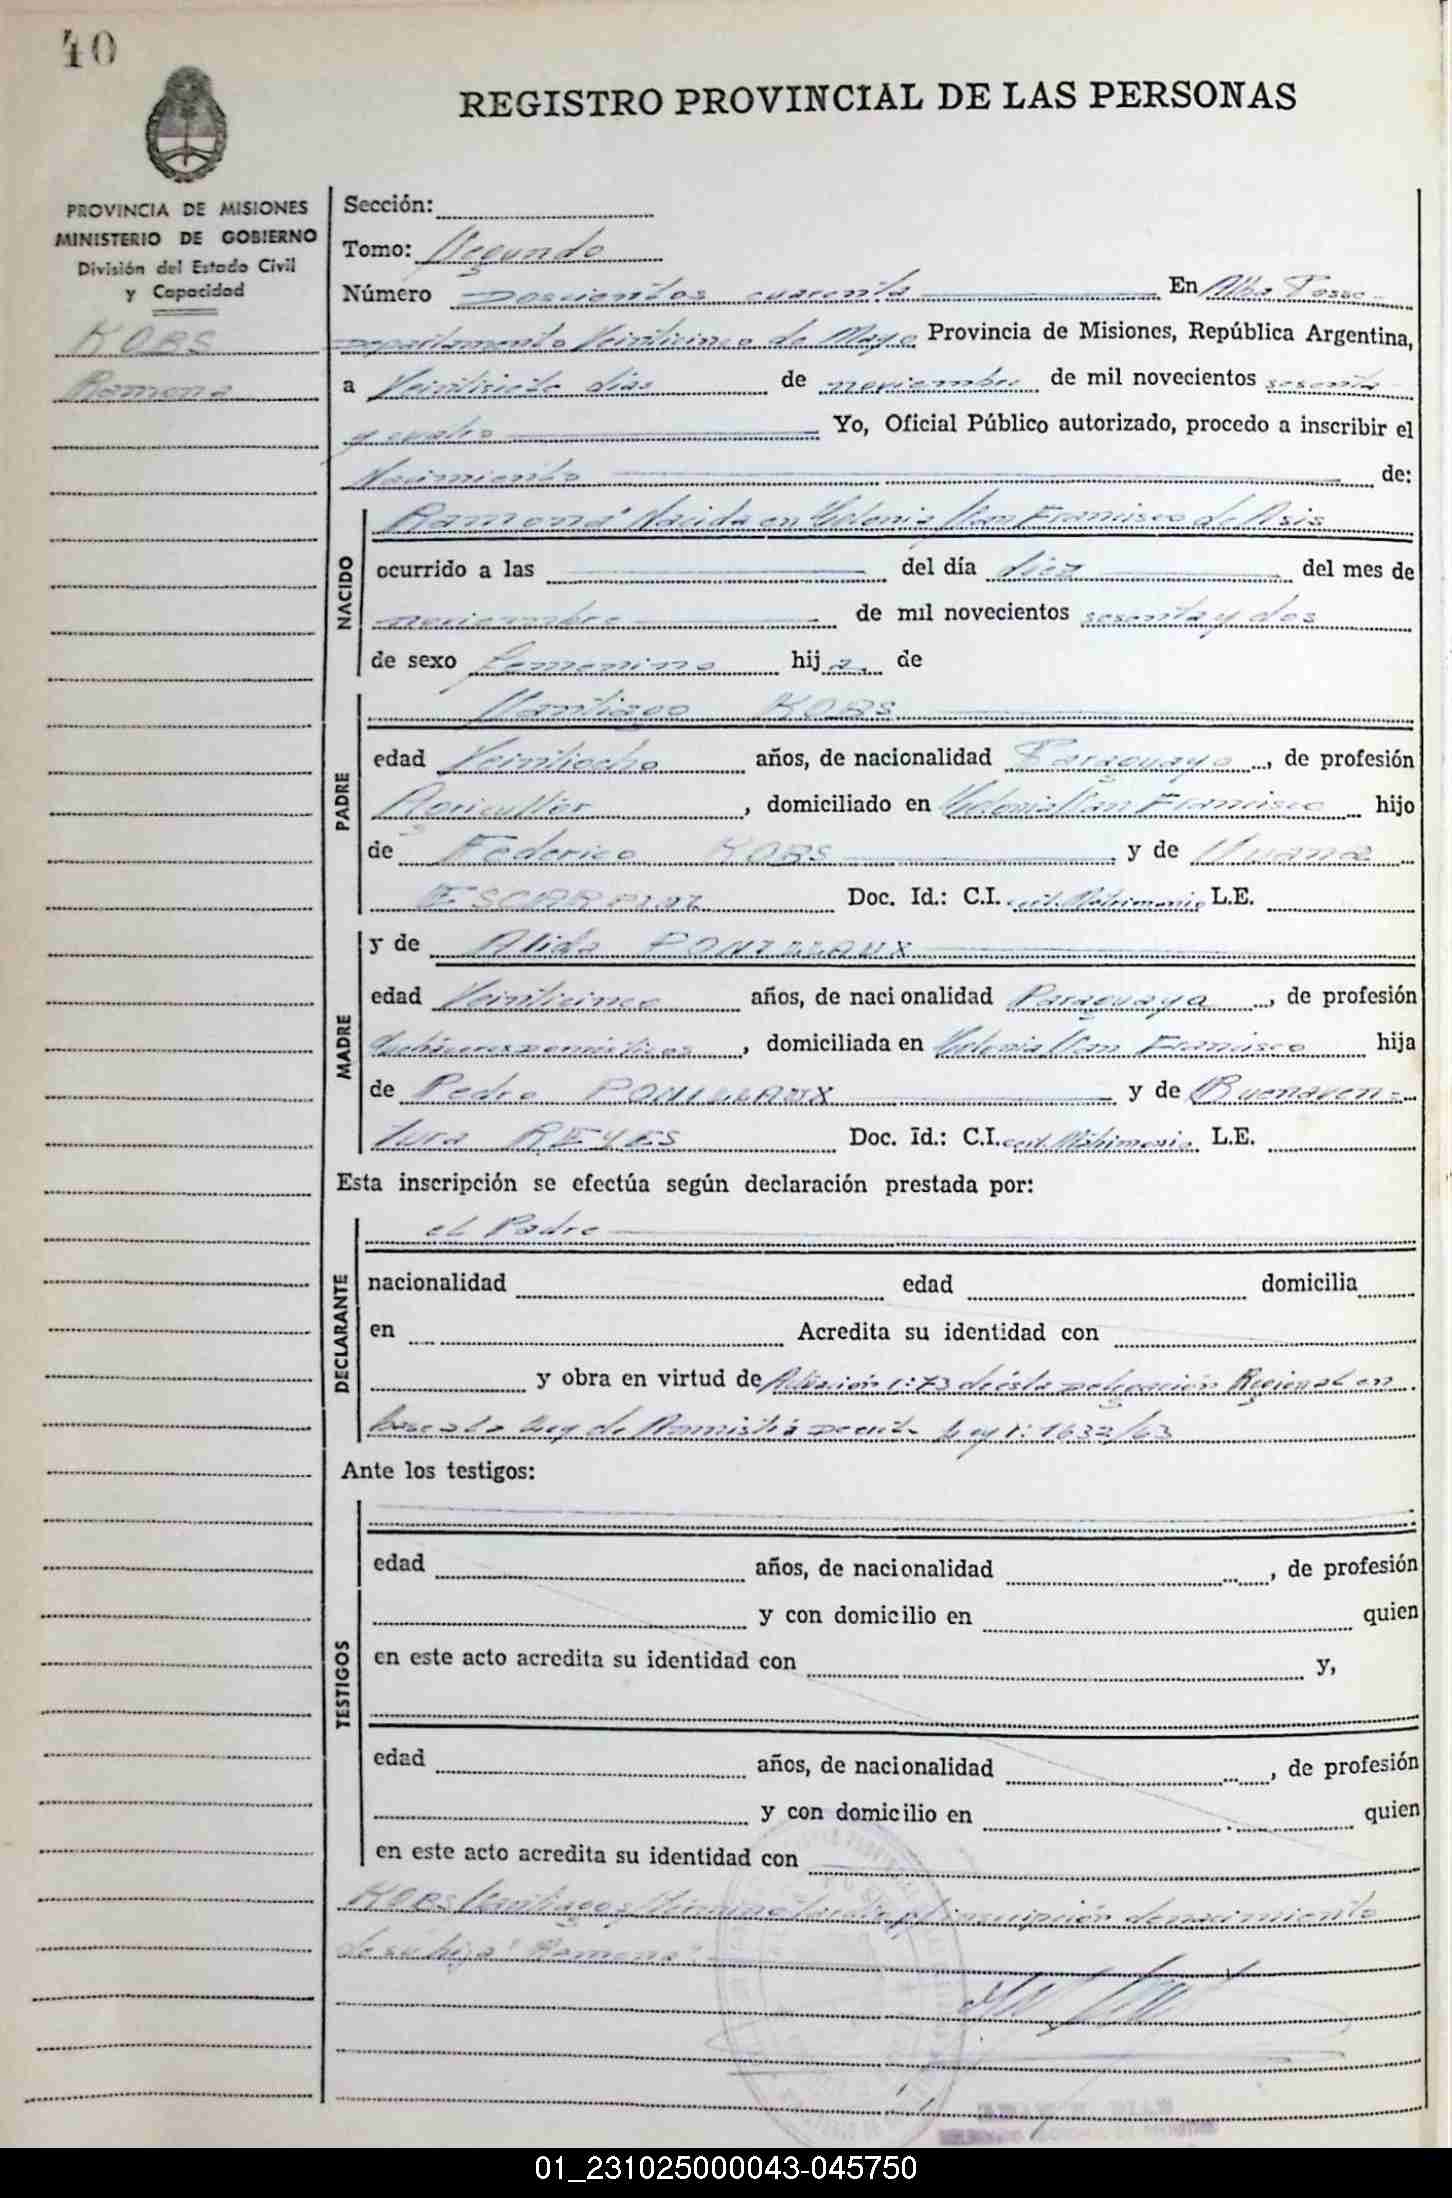 40
REGISTRO PROVINCIAL DE LAS PERSONAS
PROVINCIA DE MISIONES
MINISTERIO DE GOBIERNO
División del Estado Civil
y Capacidad
KOBS
Ramona
Sección:
Tomo: Segundo
Número Doscientos cuarenta En Alba Posse
Departamento Veinticinco de Mayo Provincia de Misiones, República Argentina,
a Veintisiete días de noviembre de mil novecientos sesenta
y cuatro Yo, Oficial Público autorizado, procedo a inscribir el
Nacimiento de:
NACIDO
"Ramona" Nacida en Colonia San Francisco de Asis
ocurrido a las del día diez del mes de
noviembre de mil novecientos sesenta y dos
de sexo femenino hija de
PADRE
Santiago KOBS
edad Veintiocho años, de nacionalidad Paraguayo, de profesión
Agricultor, domiciliado en Colonia San Francisco hijo
de Federico KOBS y de Juana
Doc. Id.: C.I. cert. Matrimonio L.E.
MADRE
y de Alida
edad Veinticinco años, de nacionalidad Paraguaya, de profesión
Quehaceres domésticos, domiciliada en Colonia San Francisco hija
de Pedro y de Buenaven-
tura REYES Doc. Id.: C.I. cert. Matrimonio L.E.
Esta inscripción se efectúa según declaración prestada por:
DECLARANTE
el Padre
nacionalidad edad domicilia
en Acredita su identidad con
y obra en virtud de Actuación 1:73 de ésta Delegación Regional en
base a la Ley de Amnistía Decreto Ley 1:1632/63
Ante los testigos:
TESTIGOS
edad años, de nacionalidad , de profesión
y con domicilio en quien
en este acto acredita su identidad con y,
edad años, de nacionalidad , de profesión
y con domicilio en quien
en este acto acredita su identidad con
KOBS Santiago s/término tardío p/inscripción de nacimiento
de su hija "Ramona".
01_231025000043-045750